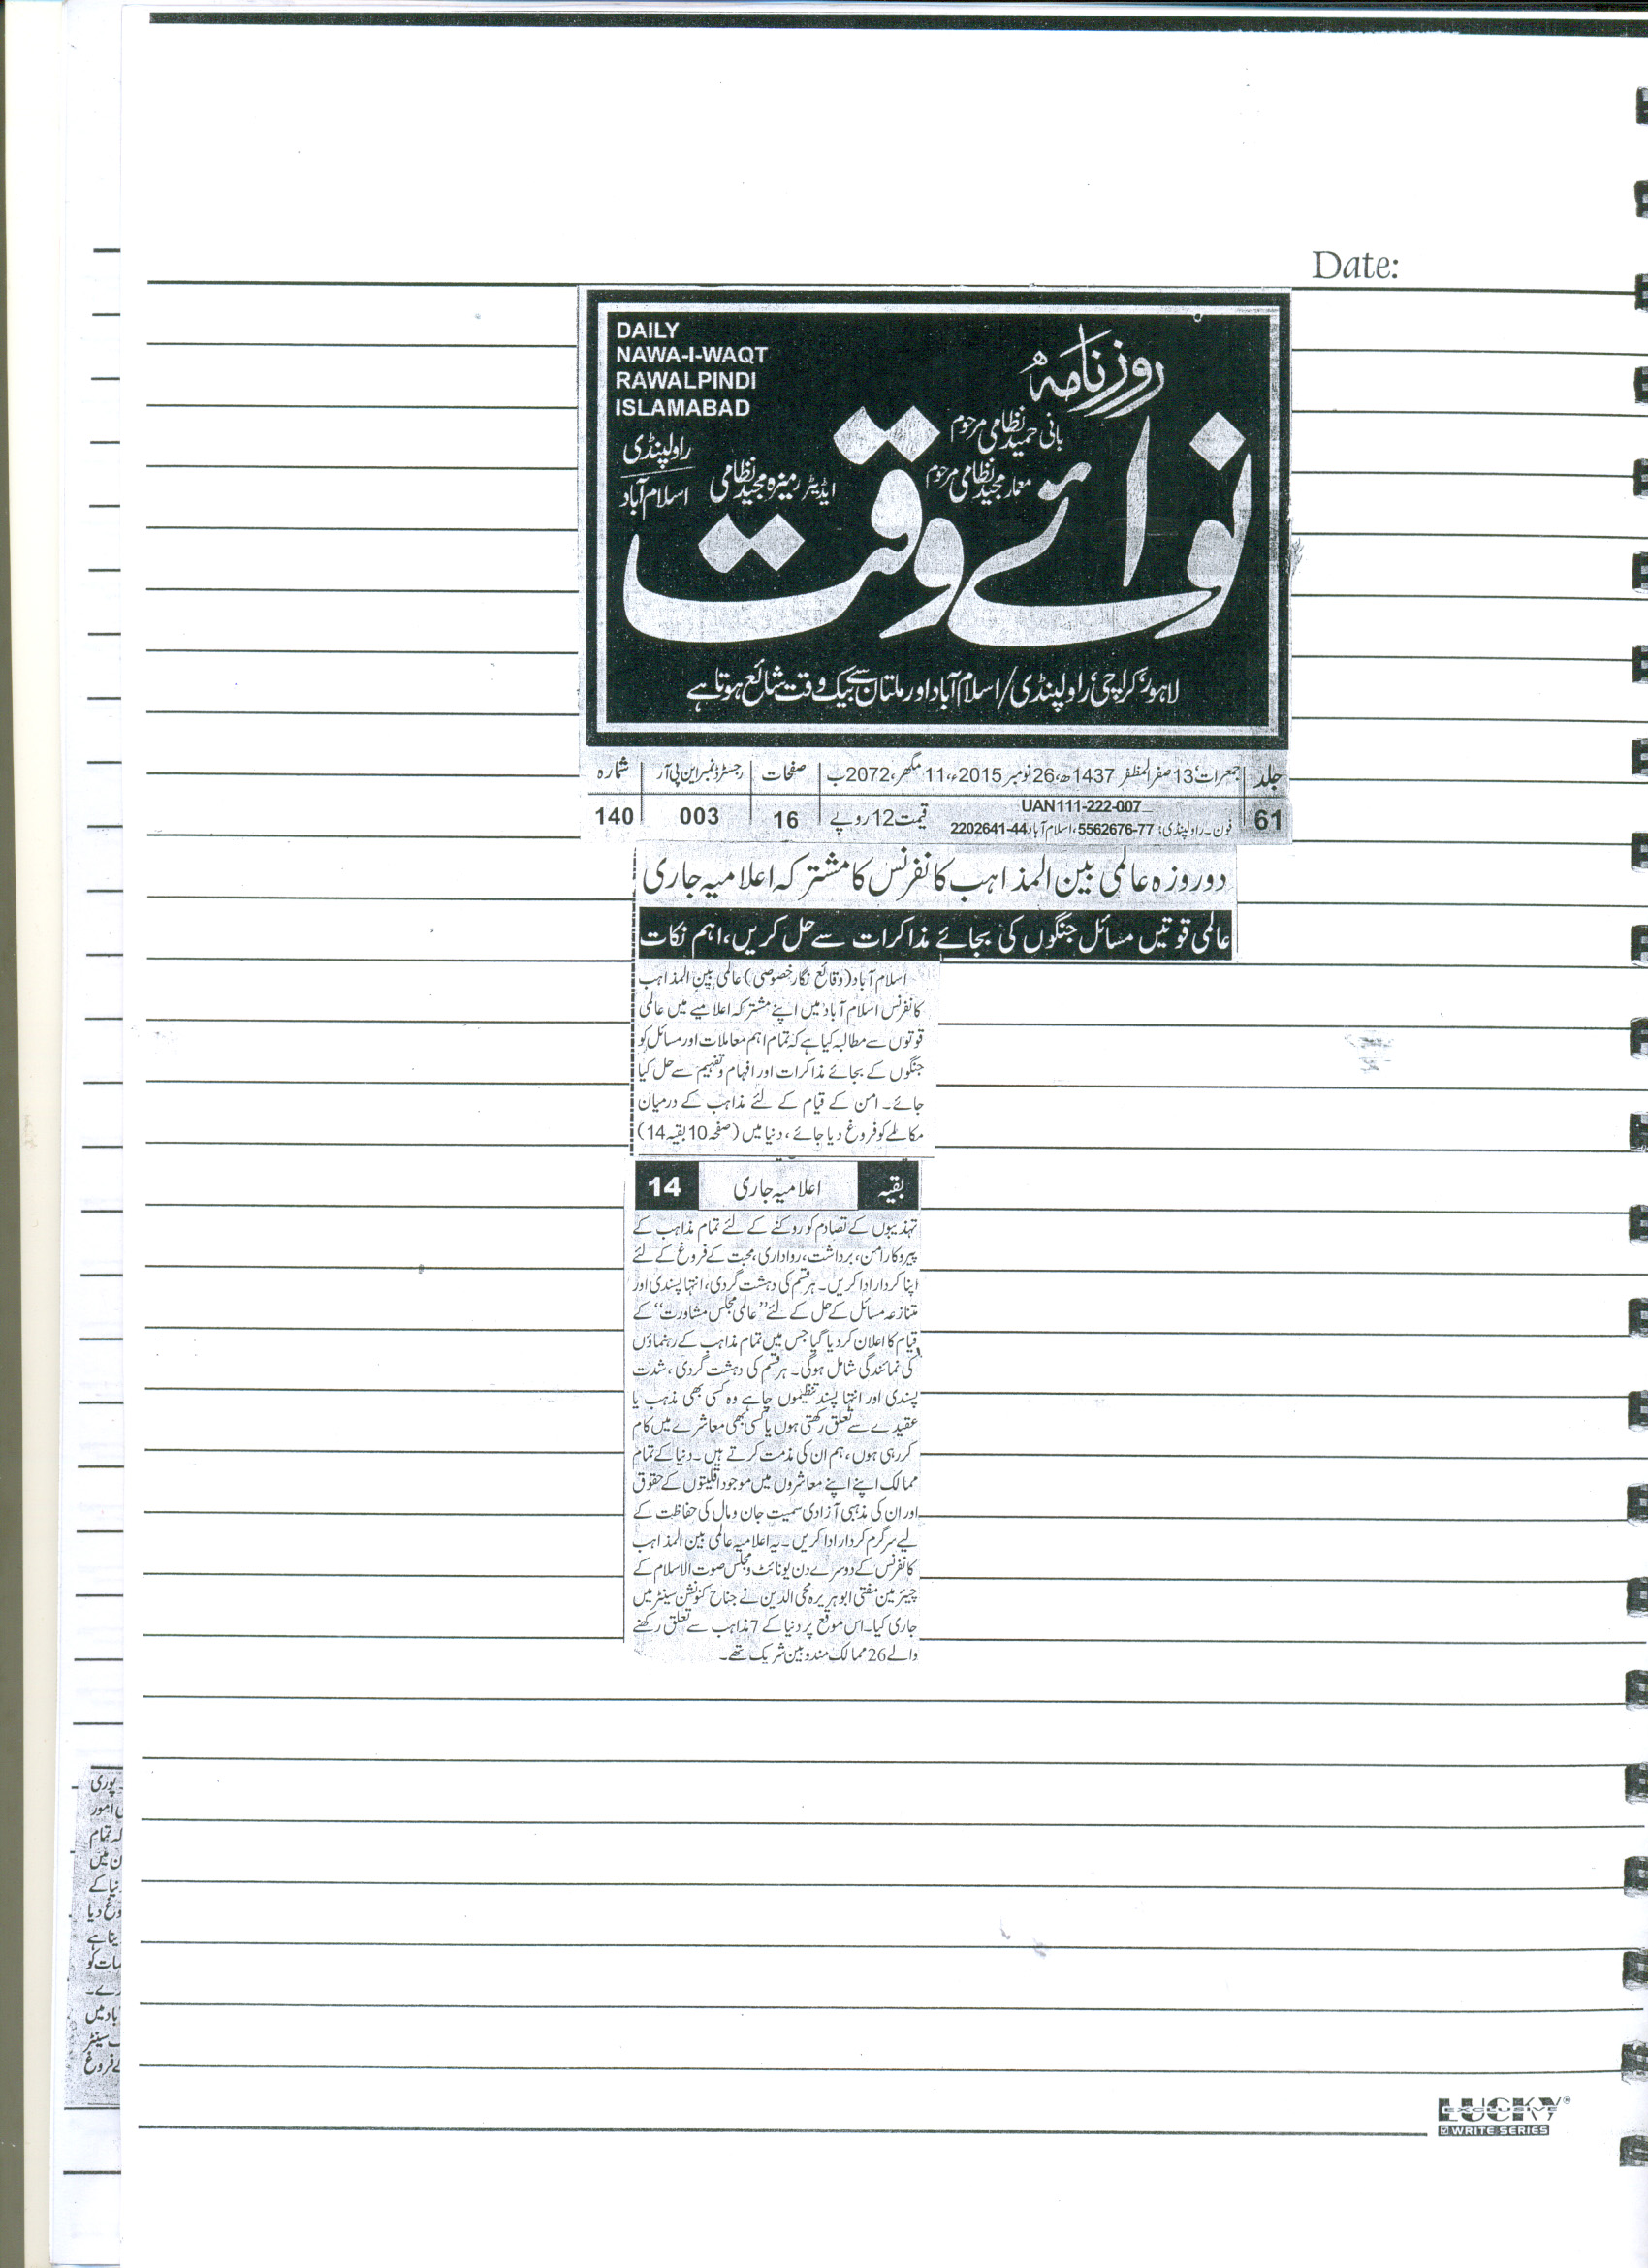 Date:
DAILY
NAWA-I-WAQT
RAWALPINDI
ISLAMABAD
روزنامہ
بانی حمید نظامی مرحوم
معمار مجید نظامی مرحوم
ایڈیٹر رمیزہ مجید نظامی
راولپنڈی
اسلام آباد
نوائے وقت
لاہور، کراچی، راولپنڈی/اسلام آباد اور ملتان سے بیک وقت شائع ہوتا ہے
جلد | جمعرات، 13 صفر المظفر 1437ھ، 26 نومبر 2015ء، 11 مگھر، 2072ب | صفحات | رجسٹرڈ نمبر این پی آر | شمارہ
61 | UAN111-222-007
فون۔ راولپنڈی: 77-5562676، اسلام آباد 44-2202641 | قیمت 12 روپے | 16 | 003 | 140
دو روزہ عالمی بین المذاہب کانفرنس کا مشترکہ اعلامیہ جاری
عالمی قوتیں مسائل جنگوں کی بجائے مذاکرات سے حل کریں، اہم نکات
اسلام آباد (وقائع نگار خصوصی) عالمی بین المذاہب
کانفرنس اسلام آباد میں اپنے مشترکہ اعلامیے میں عالمی
قوتوں سے مطالبہ کیا ہے کہ تمام اہم معاملات اور مسائل کو
جنگوں کے بجائے مذاکرات اور افہام و تفہیم سے حل کیا
جائے۔ امن کے قیام کے لئے مذاہب کے درمیان
مکالمے کو فروغ دیا جائے، دنیا میں (صفحہ 10 بقیہ 14)
بقیہ اعلامیہ جاری 14
تہذیبوں کے تصادم کو روکنے کے لئے تمام مذاہب کے
پیروکار امن، برداشت، رواداری، محبت کے فروغ کے لئے
اپنا کردار ادا کریں۔ ہر قسم کی دہشت گردی، انتہا پسندی اور
متنازعہ مسائل کے حل کے لئے ”عالمی مجلس مشاورت“ کے
قیام کا اعلان کر دیا گیا جس میں تمام مذاہب کے رہنماؤں
کی نمائندگی شامل ہوگی۔ ہر قسم کی دہشت گردی، شدت
پسندی اور انتہا پسند تنظیموں چاہے وہ کسی بھی مذہب یا
عقیدے سے تعلق رکھتی ہوں یا کسی بھی معاشرے میں کام
کر رہی ہوں، ہم ان کی مذمت کرتے ہیں۔ دنیا کے تمام
ممالک اپنے اپنے معاشروں میں موجود اقلیتوں کے حقوق
اور ان کی مذہبی آزادی سمیت جان و مال کی حفاظت کے
لیے سرگرم کردار ادا کریں۔ یہ اعلامیہ عالمی بین المذاہب
کانفرنس کے دوسرے دن یونائٹ و مجلس صوت الاسلام کے
چیئرمین مفتی ابو ہریرہ محی الدین نے جناح کنونشن سینٹر میں
جاری کیا۔ اس موقع پر دنیا کے 7 مذاہب سے تعلق رکھنے
والے 26 ممالک مندوبین شریک تھے۔
پوری
امور
کہ تمام
ن میں
نیا کے
وغ دیا
ینا ہے
مات کو
رے۔
باد میں
سینٹر
کے فروغ
LUCKY
EXCLUSIVE
WRITE SERIES